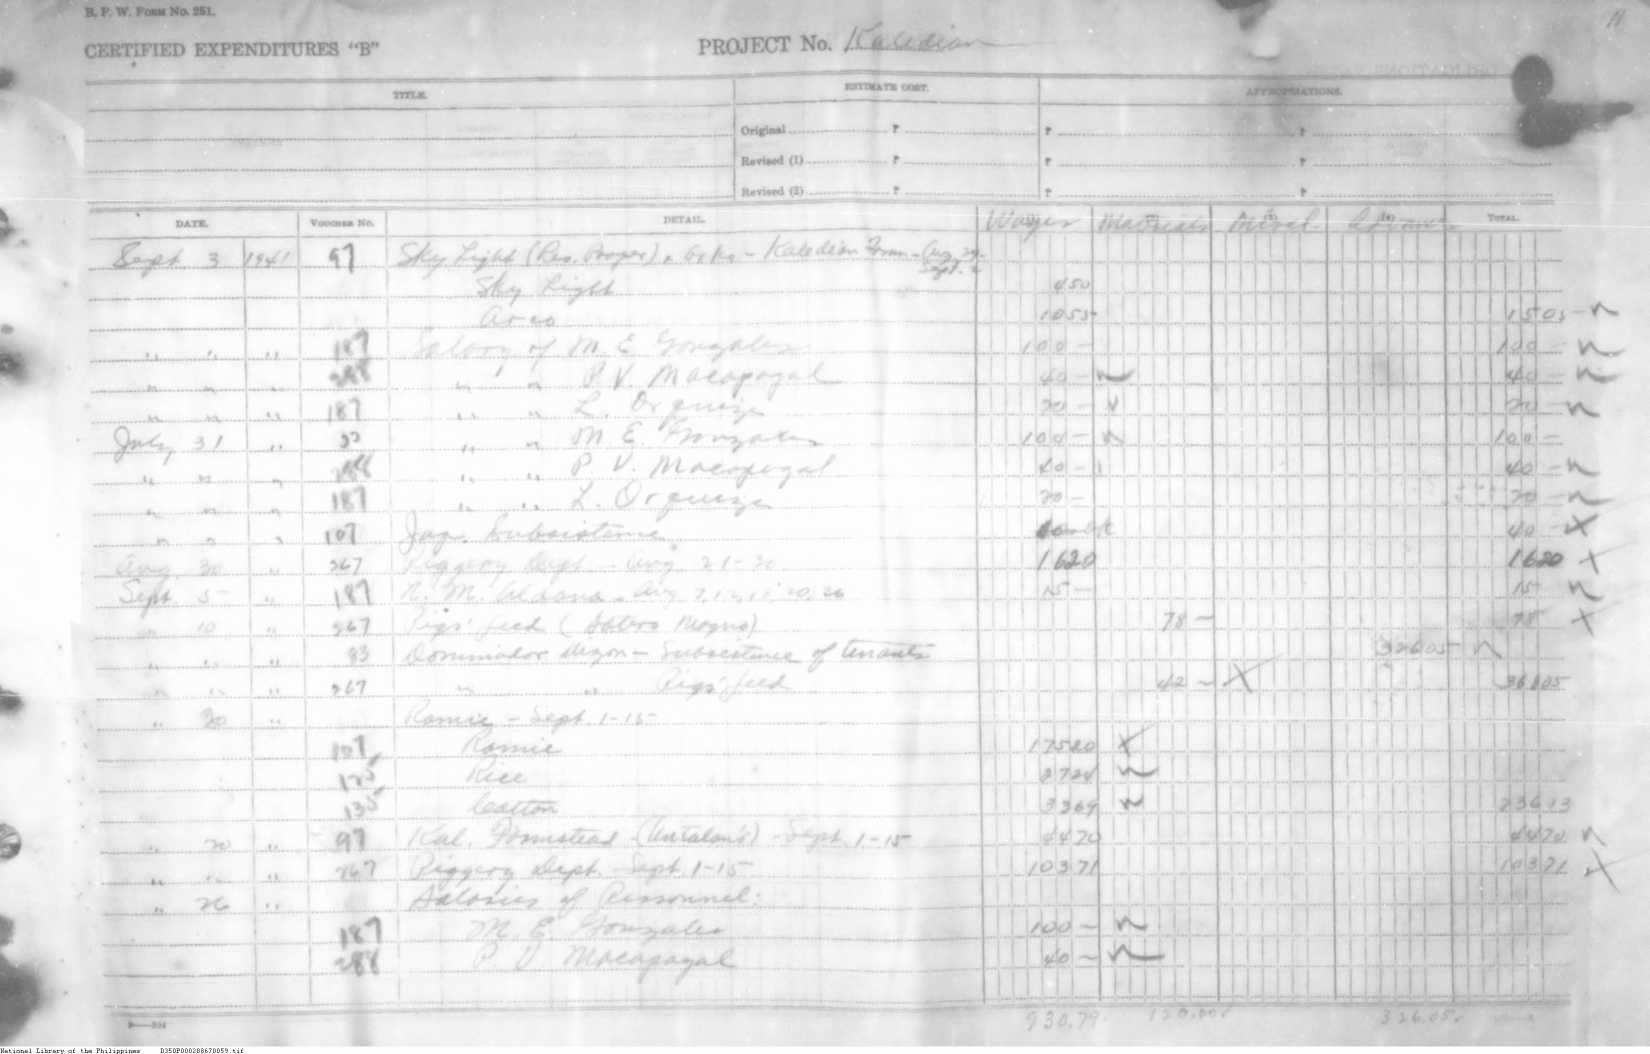 B. P. W. Form No. 251.
CERTIFIED EXPENDITURES "B" PROJECT No. Kaledian
TITLE. ESTIMATE COST. APPROPRIATIONS.
Original ₱ ₱ ₱
Revised (1) ₱ ₱ ₱
Revised (2) ₱ ₱ ₱
DATE. VOUCHER No. DETAIL. Wages Materials Miscl. TOTAL.
Sept 3 1941 97 Sky Light (Res. Proper) Kaledian Farm - Aug. 29-
Sept. 2
Sky Light 450
Arco 1055 1505 -
" " " 187 Salary of M. E. Gonzales 100 - 100 -
" " " 288 " " P. V. Macapagal 40 - 40 -
" " " 187 " " L. Orqueza 20 - 20 -
July 31 " " " M. E. Gonzales 100 - 100 -
" " " 288 " " P. V. Macapagal 40 - 40 -
" " " 187 " " L. Orqueza 20 - 20 -
" " " 107 Jap. Subsistence 40 -
Aug 30 " 267 Piggery Dept. - Aug 21-30 1620 1620
Sept. 5 " 187 R. M. Aldana - Aug 15 - 15
" 10 " 267 Pigs' feed (Sotero Magno) 78 - 78
" " " 93 Dominador Dizon - Subsistence of tenants 32605
" " " 267 " " Pigs' feed 42 - 36805
" 20 " Ramie - Sept. 1-15
107 Ramie 17520
125 Rice 2724
135 Cotton 3369 23613
" 20 " 97 Kal. Farmstead (Antalan's) - Sept. 1-15 4470 4470
" " " 267 Piggery Dept. Sept. 1-15 10371 10371
" 26 " Salaries of Personnel:
187 M. E. Gonzales 100 -
288 P. V. Macapagal 40 -
930.79 120.00 326.05
National Library of the Philippines D350P000288670059.tif